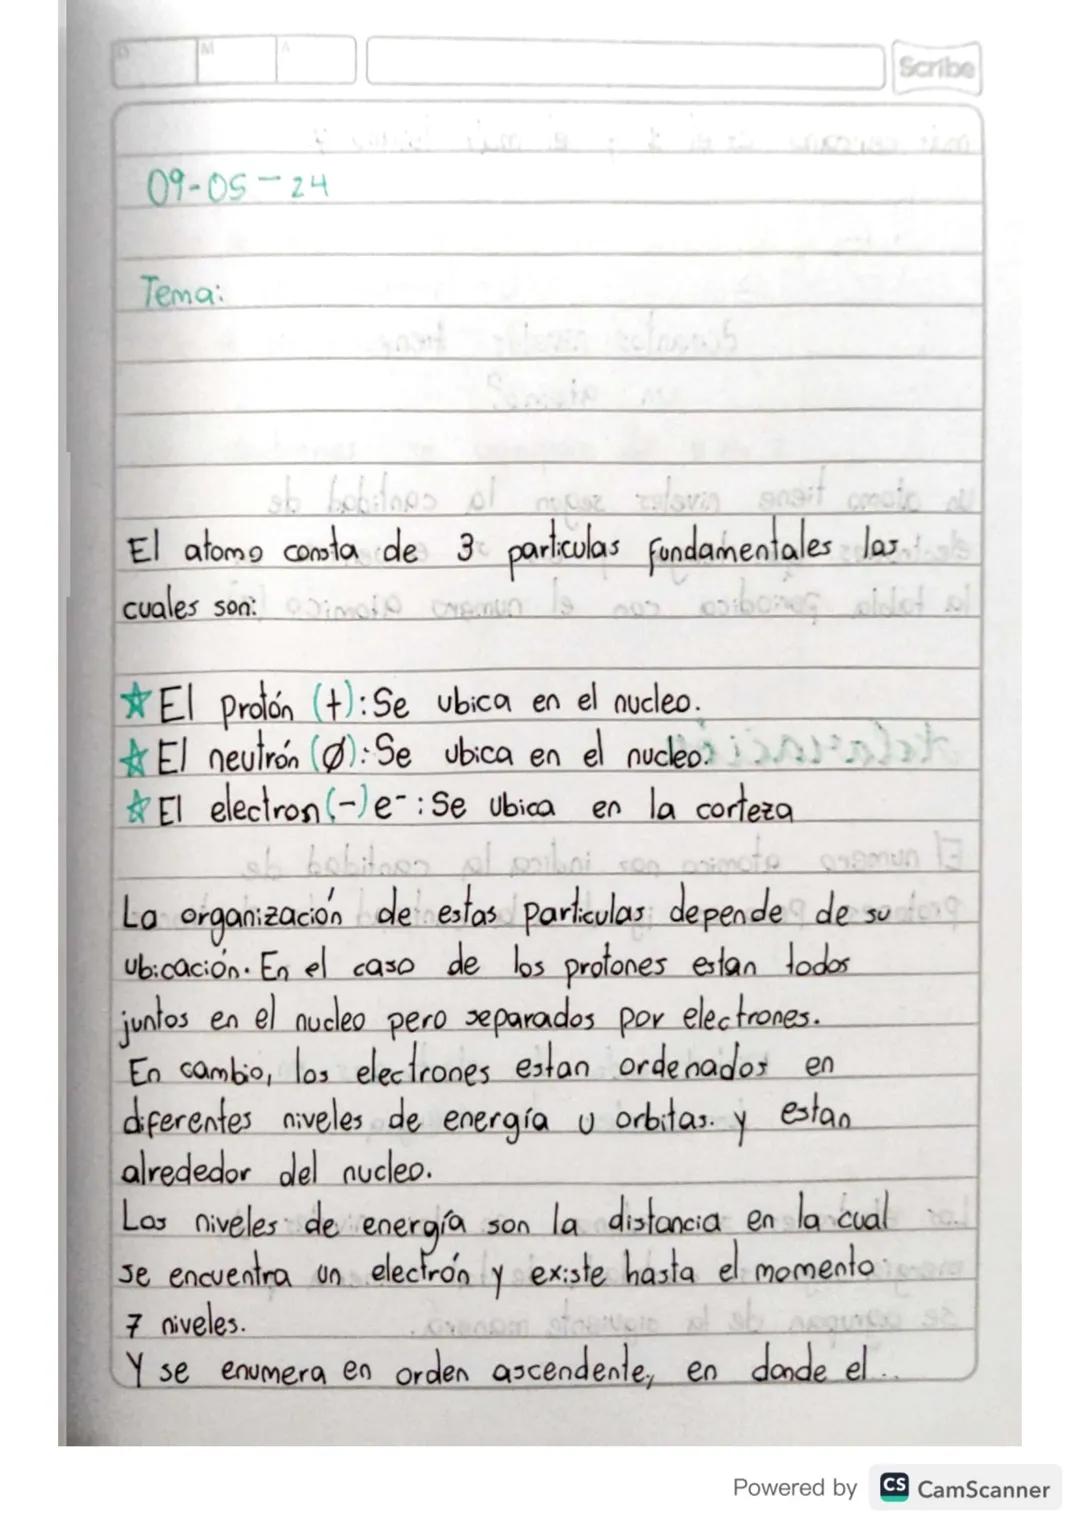 D M A
Scribe
09-05-24
Tema:
El atomo consta de 3 particulas fundamentales las
cuales son:
☆ El protón (+): Se ubica en el nucleo.
☆ El neutrón (Ø): Se ubica en el nucleo.
☆ El electron (-) e⁻: Se ubica en la corteza
La organización de estas particulas depende de su
ubicación. En el caso de los protones estan todos
juntos en el nucleo pero separados por electrones.
En cambio, los electrones estan ordenados en
diferentes niveles de energía u orbitas. y estan
alrededor del nucleo.
Los niveles de energía son la distancia en la cual
se encuentra un electrón y existe hasta el momento
7 niveles.
Y se enumera en orden ascendente, en donde el...
Powered by CS CamScanner